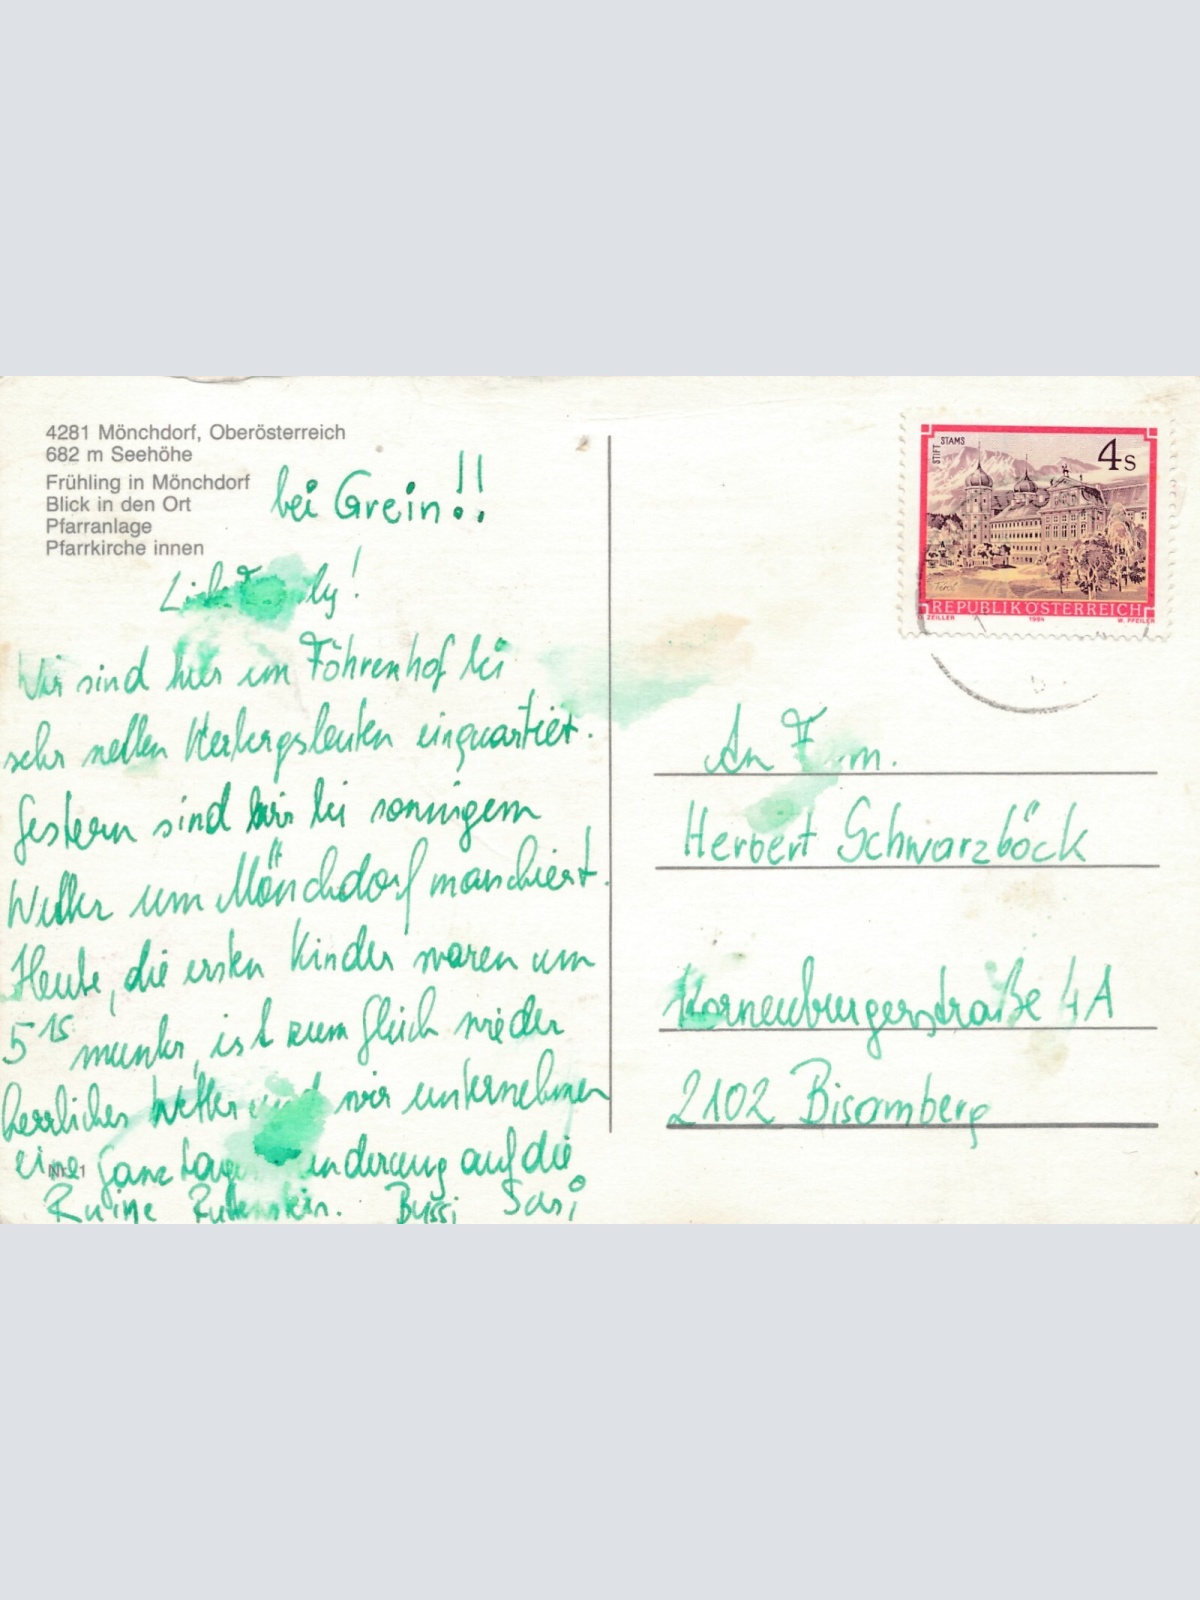 4281 Mönchdorf, Oberösterreich
682 m Seehöhe
Frühling in Mönchdorf
Blick in den Ort
Pfarranlage
Pfarrkirche innen
bei Grein!!
Wir sind hier im Föhrenhof bei
sehr netten Herbergsleuten einquartiert.
Gestern sind wir bei sonnigem
Wetter um Mönchdorf marschiert.
Heute, die ersten Kinder waren um
5 15 munter, ist zum Glück wieder
herrliches Wetter und wir unternehmen
eine auf die
Nr. 1
Ruine Bussi Sasi
STIFT STAMS
4 S
Tirol
REPUBLIK ÖSTERREICH
ZEILLER 1984 W. PFEILER
An
Herbert Schwarzböck
Korneuburgerstraße 4A
2102 Bisamberg